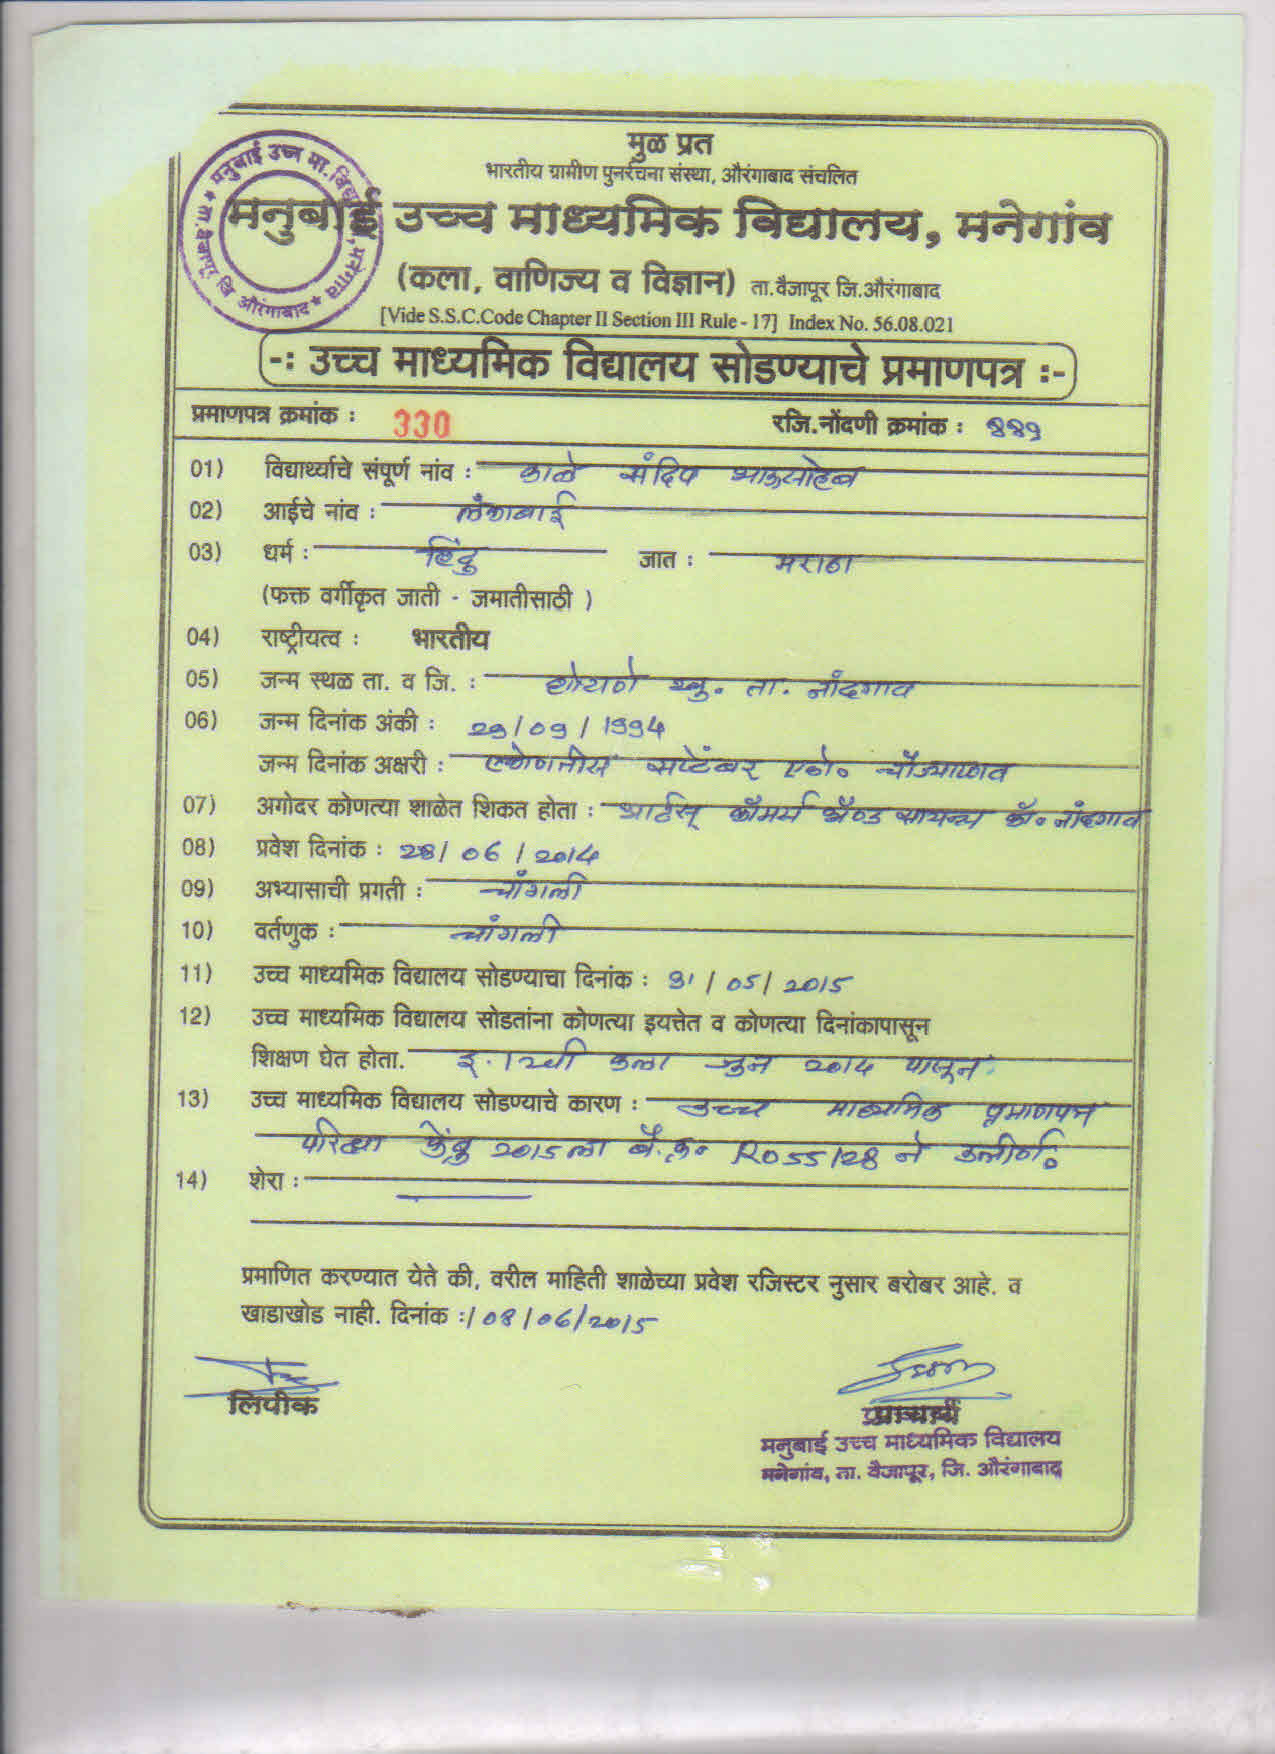 मुळ प्रत
भारतीय ग्रामीण पुनर्रचना संस्था, औरंगाबाद संचलित
मनुबाई उच्च माध्यमिक विद्यालय, मनेगांव
(कला, वाणिज्य व विज्ञान) ता.वैजापूर जि.औरंगाबाद
[Vide S.S.C.Code Chapter II Section III Rule - 17] Index No. 56.08.021
मनुबाई उच्च मा. विद्या मनेगाव * ता.वैजापूर जि औरंगाबाद *
-: उच्च माध्यमिक विद्यालय सोडण्याचे प्रमाणपत्र :-
प्रमाणपत्र क्रमांक : 330 रजि.नोंदणी क्रमांक :
01) विद्यार्थ्याचे संपूर्ण नांव : काळे संदिप भाऊसाहेब
02) आईचे नांव : लंकाबाई
03) धर्म : हिंदु जात : मराठा
(फक्त वर्गीकृत जाती - जमातीसाठी )
04) राष्ट्रीयत्व : भारतीय
05) जन्म स्थळ ता. व जि. : खु. ता. नांदगाव
06) जन्म दिनांक अंकी : 29/09/1994
जन्म दिनांक अक्षरी : एकोणतीस सप्टेंबर एको. चौऱ्याण्णव
07) अगोदर कोणत्या शाळेत शिकत होता : आर्टस् कॉमर्स अॅण्ड सायन्स कॉ. नांदगाव
08) प्रवेश दिनांक : 28/06/2014
09) अभ्यासाची प्रगती : चांगली
10) वर्तणुक : चांगली
11) उच्च माध्यमिक विद्यालय सोडण्याचा दिनांक : 31/05/2015
12) उच्च माध्यमिक विद्यालय सोडतांना कोणत्या इयत्तेत व कोणत्या दिनांकापासून
शिक्षण घेत होता. इ. 12वी कला जुन 2014 पासून
13) उच्च माध्यमिक विद्यालय सोडण्याचे कारण : उच्च माध्यमिक प्रमाणपत्र
परिक्षा फेब्रु 2015 ला बै.क्र. R055128 ने उत्तीर्ण.
14) शेरा :
प्रमाणित करण्यात येते की, वरील माहिती शाळेच्या प्रवेश रजिस्टर नुसार बरोबर आहे. व
खाडाखोड नाही. दिनांक :/ 08/06/2015
लिपीक
प्राचार्य
मनुबाई उच्च माध्यमिक विद्यालय
मनेगांव, ता. वैजापूर, जि. औरंगाबाद